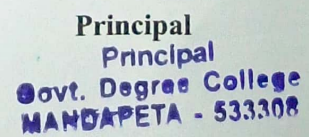 Principal
Principal
Govt. Degree College
MANDAPETA - 533308